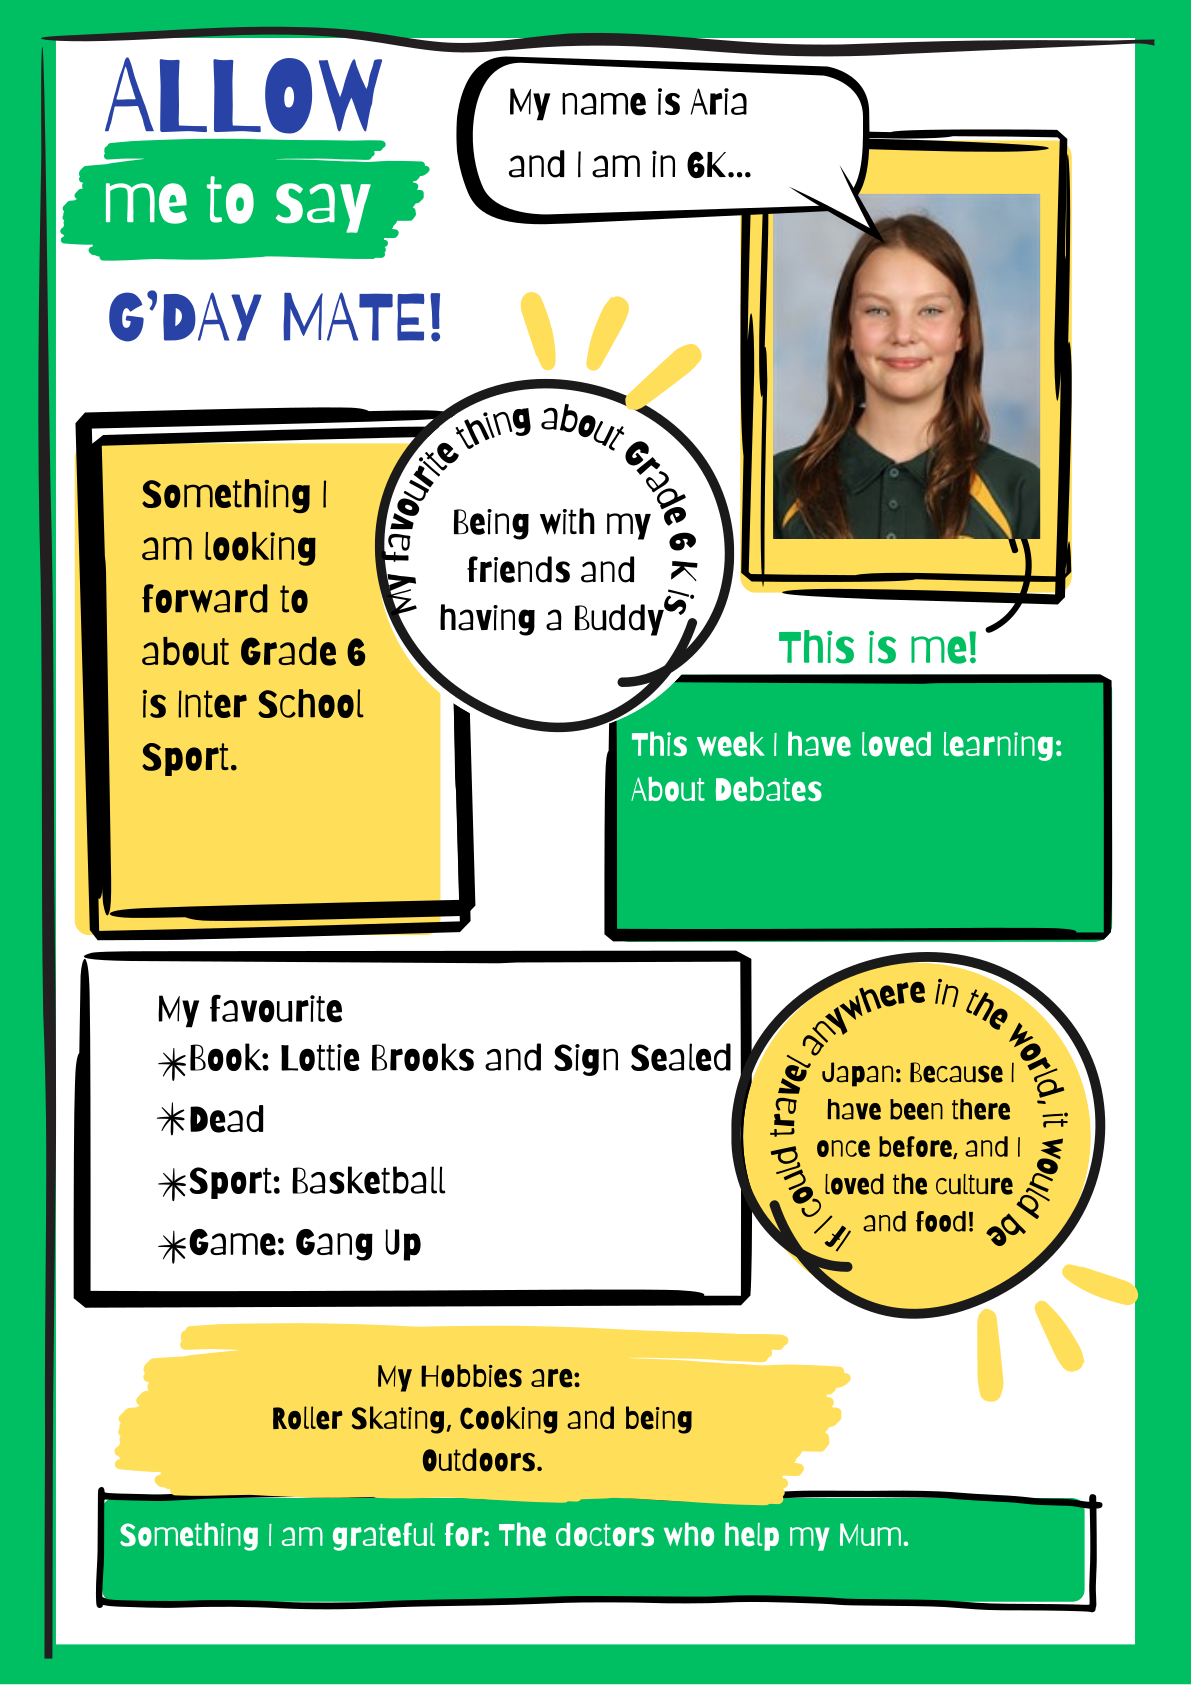 ALLOW
me to say
G'DAY MATE!
My name is Aria
and I am in 6K...
This is me!
Something I
am looking
forward to
about Grade 6
is Inter School
Sport.
My favourite thing about Grade 6 K is
Being with my
friends and
having a Buddy
This week I have loved learning:
About Debates
My favourite
Book: Lottie Brooks and Sign Sealed
Dead
Sport: Basketball
Game: Gang Up
If I could travel anywhere in the world, it would be
Japan: Because I
have been there
once before, and I
loved the culture
and food!
My Hobbies are:
Roller Skating, Cooking and being
Outdoors.
Something I am grateful for: The doctors who help my Mum.